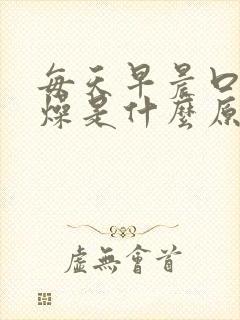 每天早晨口
燥是什麼原
虛無會首